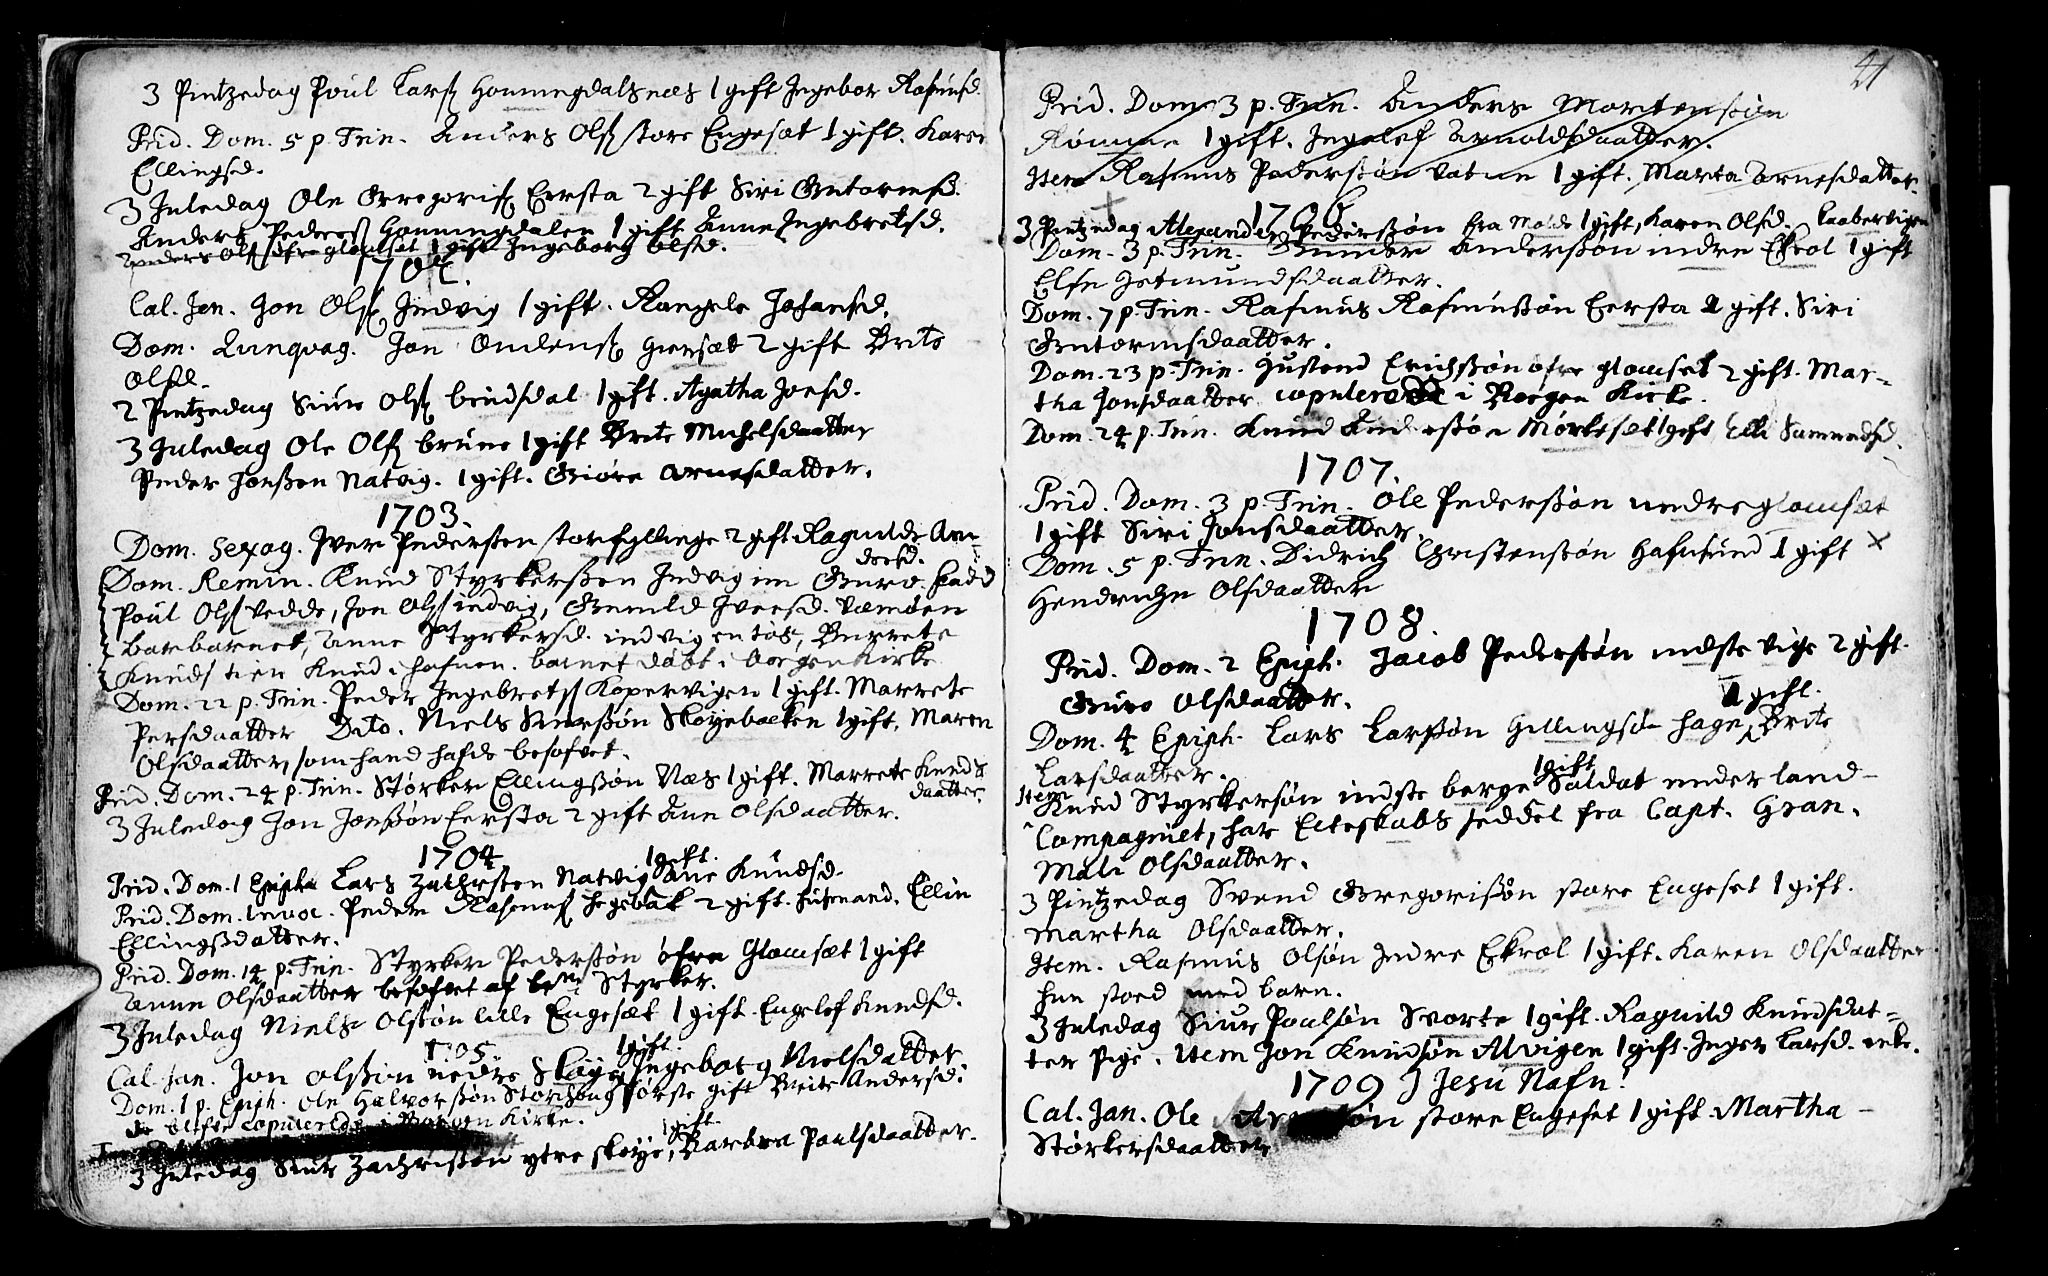 3 Pintzedag Poul Lars. Honningdalsnæs 1 gift Ingebor Rasmusd.
Prid. Dom. 5 p. Trin. Anders Ols. store Engesæt 1 gift. Karen
Ellingsd.
3 Juledag Ole Gregoris. Eersta 2 gift Siri Gutormsd.
Anders Peders. Honningdalen 1 gift Anne Ingebretsd.
Anders Ols. øfre glomset 1 gift Ingeborg Olsd.
Cal. Jan. Jon Ols. Indvig 1 gift. Rangele Johansd.
Dom. Qvinqvag. Jon giersæt 2 gift Brite
Olsd.
2 Pintzedag Siur Ols. 1 gift. Agatha Joesd.
3 Juledag Ole Ols. brune 1 gift Brite Michelsdaatter
Peder Jonssen Natvig. 1 gift. Giøre Arnesdatter.
1703.
Dom. Sexag. Iver Pederssen storfyllinge 2 gift Ragnilde Am-
Dom. Remin. Knud Styrkerssen Indvig im Guro
Poul Ols. Vedde, Jon Ols. indvig, Gunild Iversd.
barbarnet, Anne Styrkersd. indvig en tøs, Berrete
Knuds i hafnen. barnet døbt i Borgen Kirke
Dom. 22 p. Trin. Peder Ingebrets. Kopervigen 1 gift. Marrete
Persdaatter Dito. Niels Siurssøn Skoyebacken 1 gift. Maren
Olsdaatter, som hand hafde besofvet.
Prid. Dom. 24 p. Trin. Størker Ellingssøn Næs 1 gift. Marrete Knuds
daatter.
3 Juledag Jon Jonssøn Eersta 2 gift Ane Olsdaatter.
1704
1 gift.
Prid. Dom. 1 Epiph. Lars Zachrssen Natvig Ane Knudsd.
Prid. Dom. Invoc. Peder Rasmus. 2 gift. Ellin
Ellingsdatter.
Prid. Dom. 14 p. Trin. Styrker Pederssøn øfre Glomsæt 1 gift
Anne Olsdaatter besofvet af Styrker.
3 Juledag Niels Olssøn lille Engesæt 1 gift. Engelef Knudsd.
1705. 1 gift
Cal. Jan. Jon Olssøn nedre Skoye, Ingeborg Nielsdatter
Dom. 1 p. Epiph. Ole Halvorssøn første gift Brite Andersd.
de blifve copulerede i Borgen Kirke.
1 gift.
3 Juledag Siur Zachrissøn ytre skoye, Barbra Paulsdaatter.
21
Prid. Dom. 3 p. Trin. Anders Mortenssøn
Rønnne 1 gift. Ingelef Arnoldsdaatter.
Item Rasmus Pederssøn Vatne 1 gift. Marta Arnesdatter.
1706
3 Pintzedag Alexander Pederssøn fra Molde 1 gift, Karen Olsd.
Dom. 3 p. Trin. Gunder Anderssøn indre Ekrol 1 gift
Else Jetmundsdaatter.
Dom. 7 p. Trin. Rasmus Rasmussøn Eersta 1 gift. Siri
Gutormsdaatter.
Dom. 23 p. Trin. Gustend Erichssøn øfre glomset 2 gift. Mar-
tha Jonsdaatter copulerede i Borgen Kirke.
Dom. 24 p. Trin. Knud Anderssøn Mørkesæt 1 gift Elli Samundsd.
1707.
Prid. Dom. 3 p. Trin. Ole Pederssøn nedre glomsæt
1 gift Siri Jonsdaatter.
Dom. 5 p. Trin. Didrich Christenssøn Hafnsund 1 gift
Hendriche Olsdaatter
1708.
Prid. Dom. 2 Epiph. Jacob Pederssøn nedste vige 2 gift.
Guro Olsdaatter.
1 gift.
Dom. 4 Epiph. Lars Larssøn Gillingsø hage, Brite
Larsdaatter.
1 gift
Item Knud Styrkersøn indste berge Saldat under land-
Compagniet, har Ecteskabs seddel fra Capt. Gran.
Mali Olsdaatter.
3 Pintzedag Svend Gregorissøn store Engeset 1 gift.
Martha Olsdaatter.
Item. Rasmus Olsøn Indre Ekrol 1 gift. Karen Olsdaatter
hun stoed med barn.
3 Juledag Siur Poulsøn Svorte 1 gift. Ragnild Knudsdat-
ter pige. Item Jon Knudsøn Alvigen 1 gift. Inger Larsd. enke.
1709 I Jesu Nafn.
Cal. Jan. Ole store Engeset 1 gift. Martha
Størkersdaatter